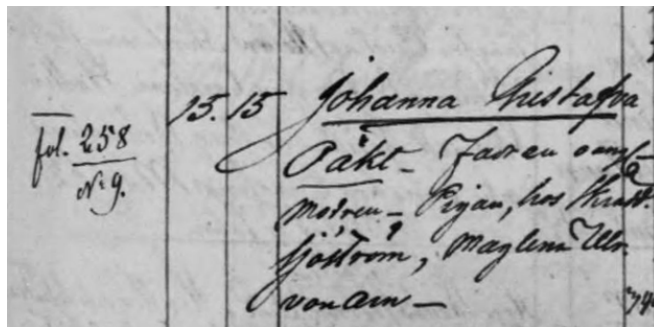 fol. 258
No 9.
15. 15 Johanna Gustafva
Oäkt - Fadren
modren - Pigan, hos
Sjöström, Maglena Ulr.
von